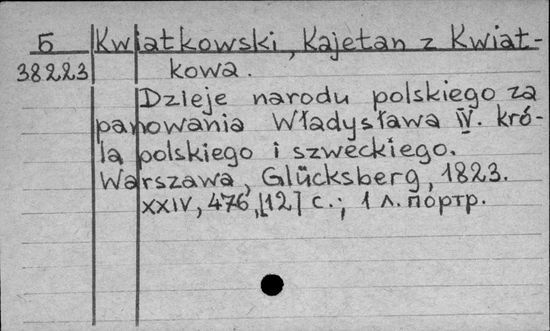 Б Kwiatkowski, Kajetan z Kwiat-
38223 kowa.
Dzieje narodu polskiego za
panowania Władysława IV. kró-
la polskiego i szweckiego.
Warszawa, Glücksberg, 1823.
XXIV, 476, [12] с.; 1 л. портр.